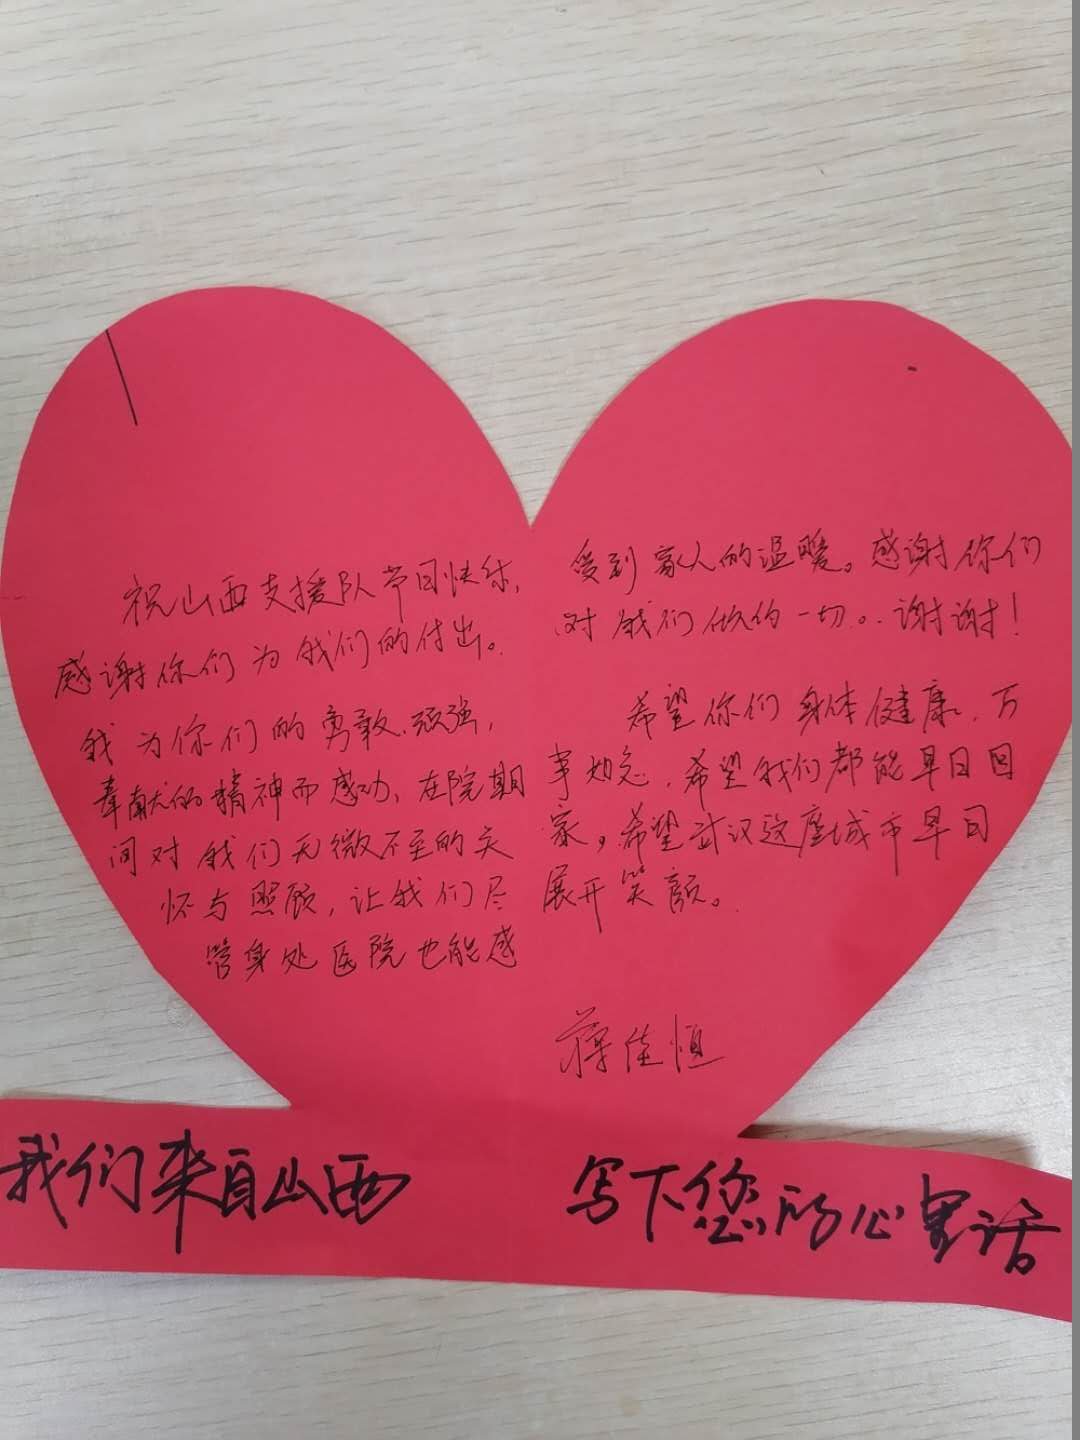 祝山西支援队节日快乐，
感谢你们为我们的付出。
我为你们的勇敢、顽强，
奉献的精神而感动、在院期
间对我们无微不至的关
怀与照顾，让我们尽
管身处医院也能感
受到家人的温暖。感谢你们
对我们做的一切。谢谢！
希望你们身体健康，万
事如意，希望我们都能早日回
家。希望武汉这座城市早日
展开笑颜。
蒋佳恒
我们来自山西
写下您的心里话